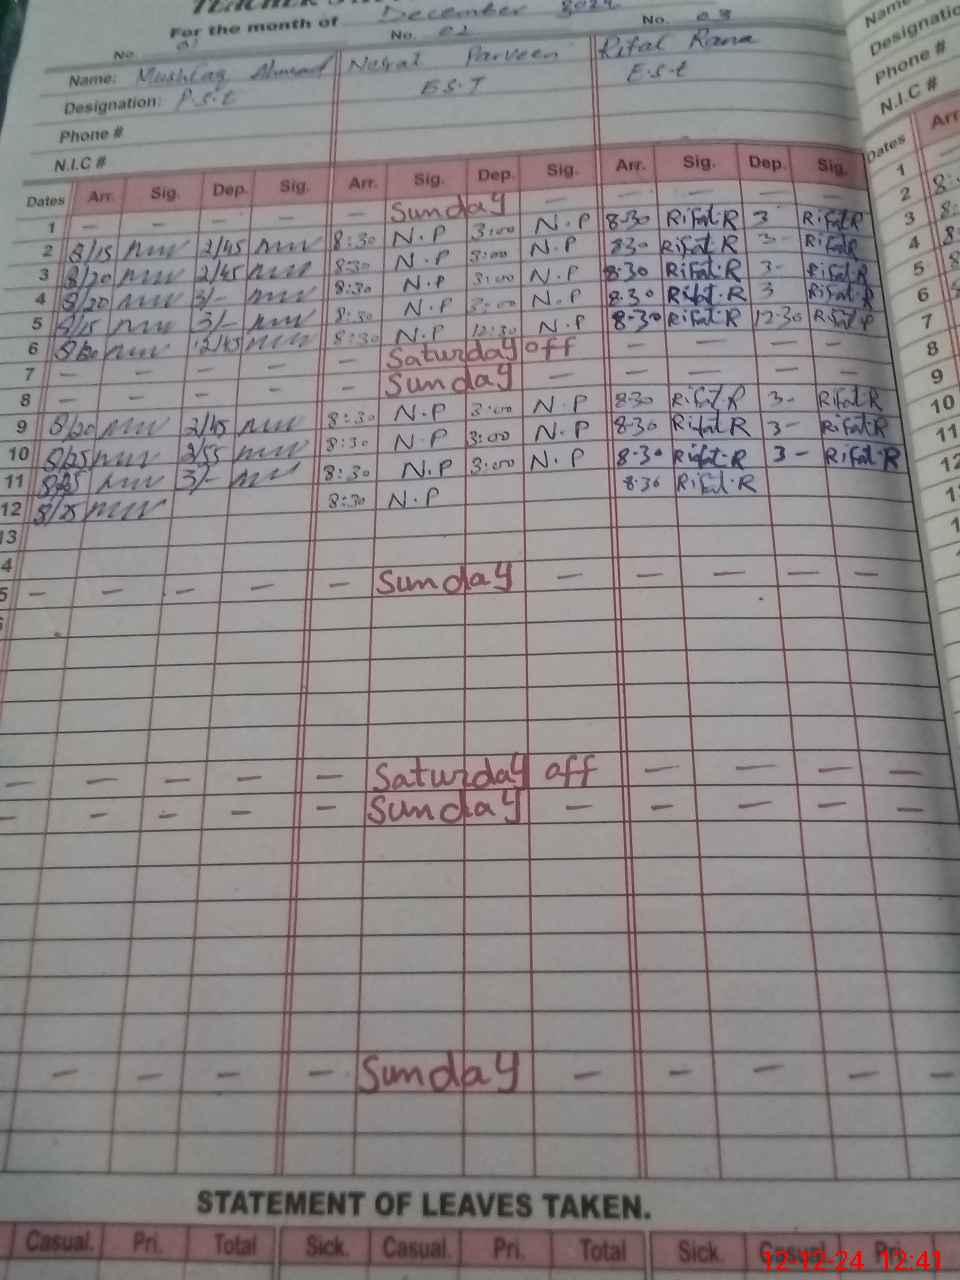 For the month of December 2024
No. 01 No. 02 No. 03
Name: Mushtaq Ahmad Nusrat Parveen Rifat Rana
Designation: P.S.t E.S.T E.S.t
Phone #
N.I.C #
Dates Arr. Sig. Dep. Sig. Arr. Sig. Dep. Sig. Arr. Sig. Dep. Sig.
1 — — — — — Sunday — — — — —
2 8/15 2/45 8:30 N.P 3:00 N.P 8·30 Rifat.R 3 Rifat.R
3 8/20 2/45 8:30 N.P 3:00 N.P 830 Rifat.R 3- Rifat.R
4 8/20 3/- 8:30 N.P 3:00 N.P 8·30 Rifat.R 3- Rifat.R
5 8/15 3/- 8:30 N.P 3:00 N.P 8·30 Rifat.R 3 Rifat.R
6 8/20 12/45 8:30 N.P 12:30 N.P 8·30 Rifat.R 12·30 Rifat.R
7 — — — — — Saturday off — — — —
8 — — — — — Sunday — — — — —
9 8/20 2/45 8:30 N.P 3:00 N.P 8·30 Rifat.R 3- Rifat.R
10 8/25 2/55 8:30 N.P 3:00 N.P 8·30 Rifat.R 3- Rifat.R
11 8/25 3/- 8:30 N.P 3:00 N.P 8·30 Rifat.R 3- Rifat.R
12 8/25 8:30 N.P 8·30 Rifat.R
13
4
5 — — — — — Sunday — — — — —
— — — — — Saturday off — — — —
— — — — — Sunday — — — — —
— — — — Sunday — — — — —
STATEMENT OF LEAVES TAKEN.
Casual. Pri. Total Sick. Casual. Pri. Total Sick. Casual. Pri.
12-12-24 12:41
Name
Designatio
Phone #
N.I.C #
Dates Arr
1
2 8
3 8
4 8
5 8
6
7
8
9
10
11
12